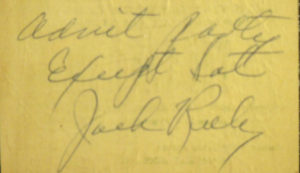 Admit Party
Except Sat
Jack Riley